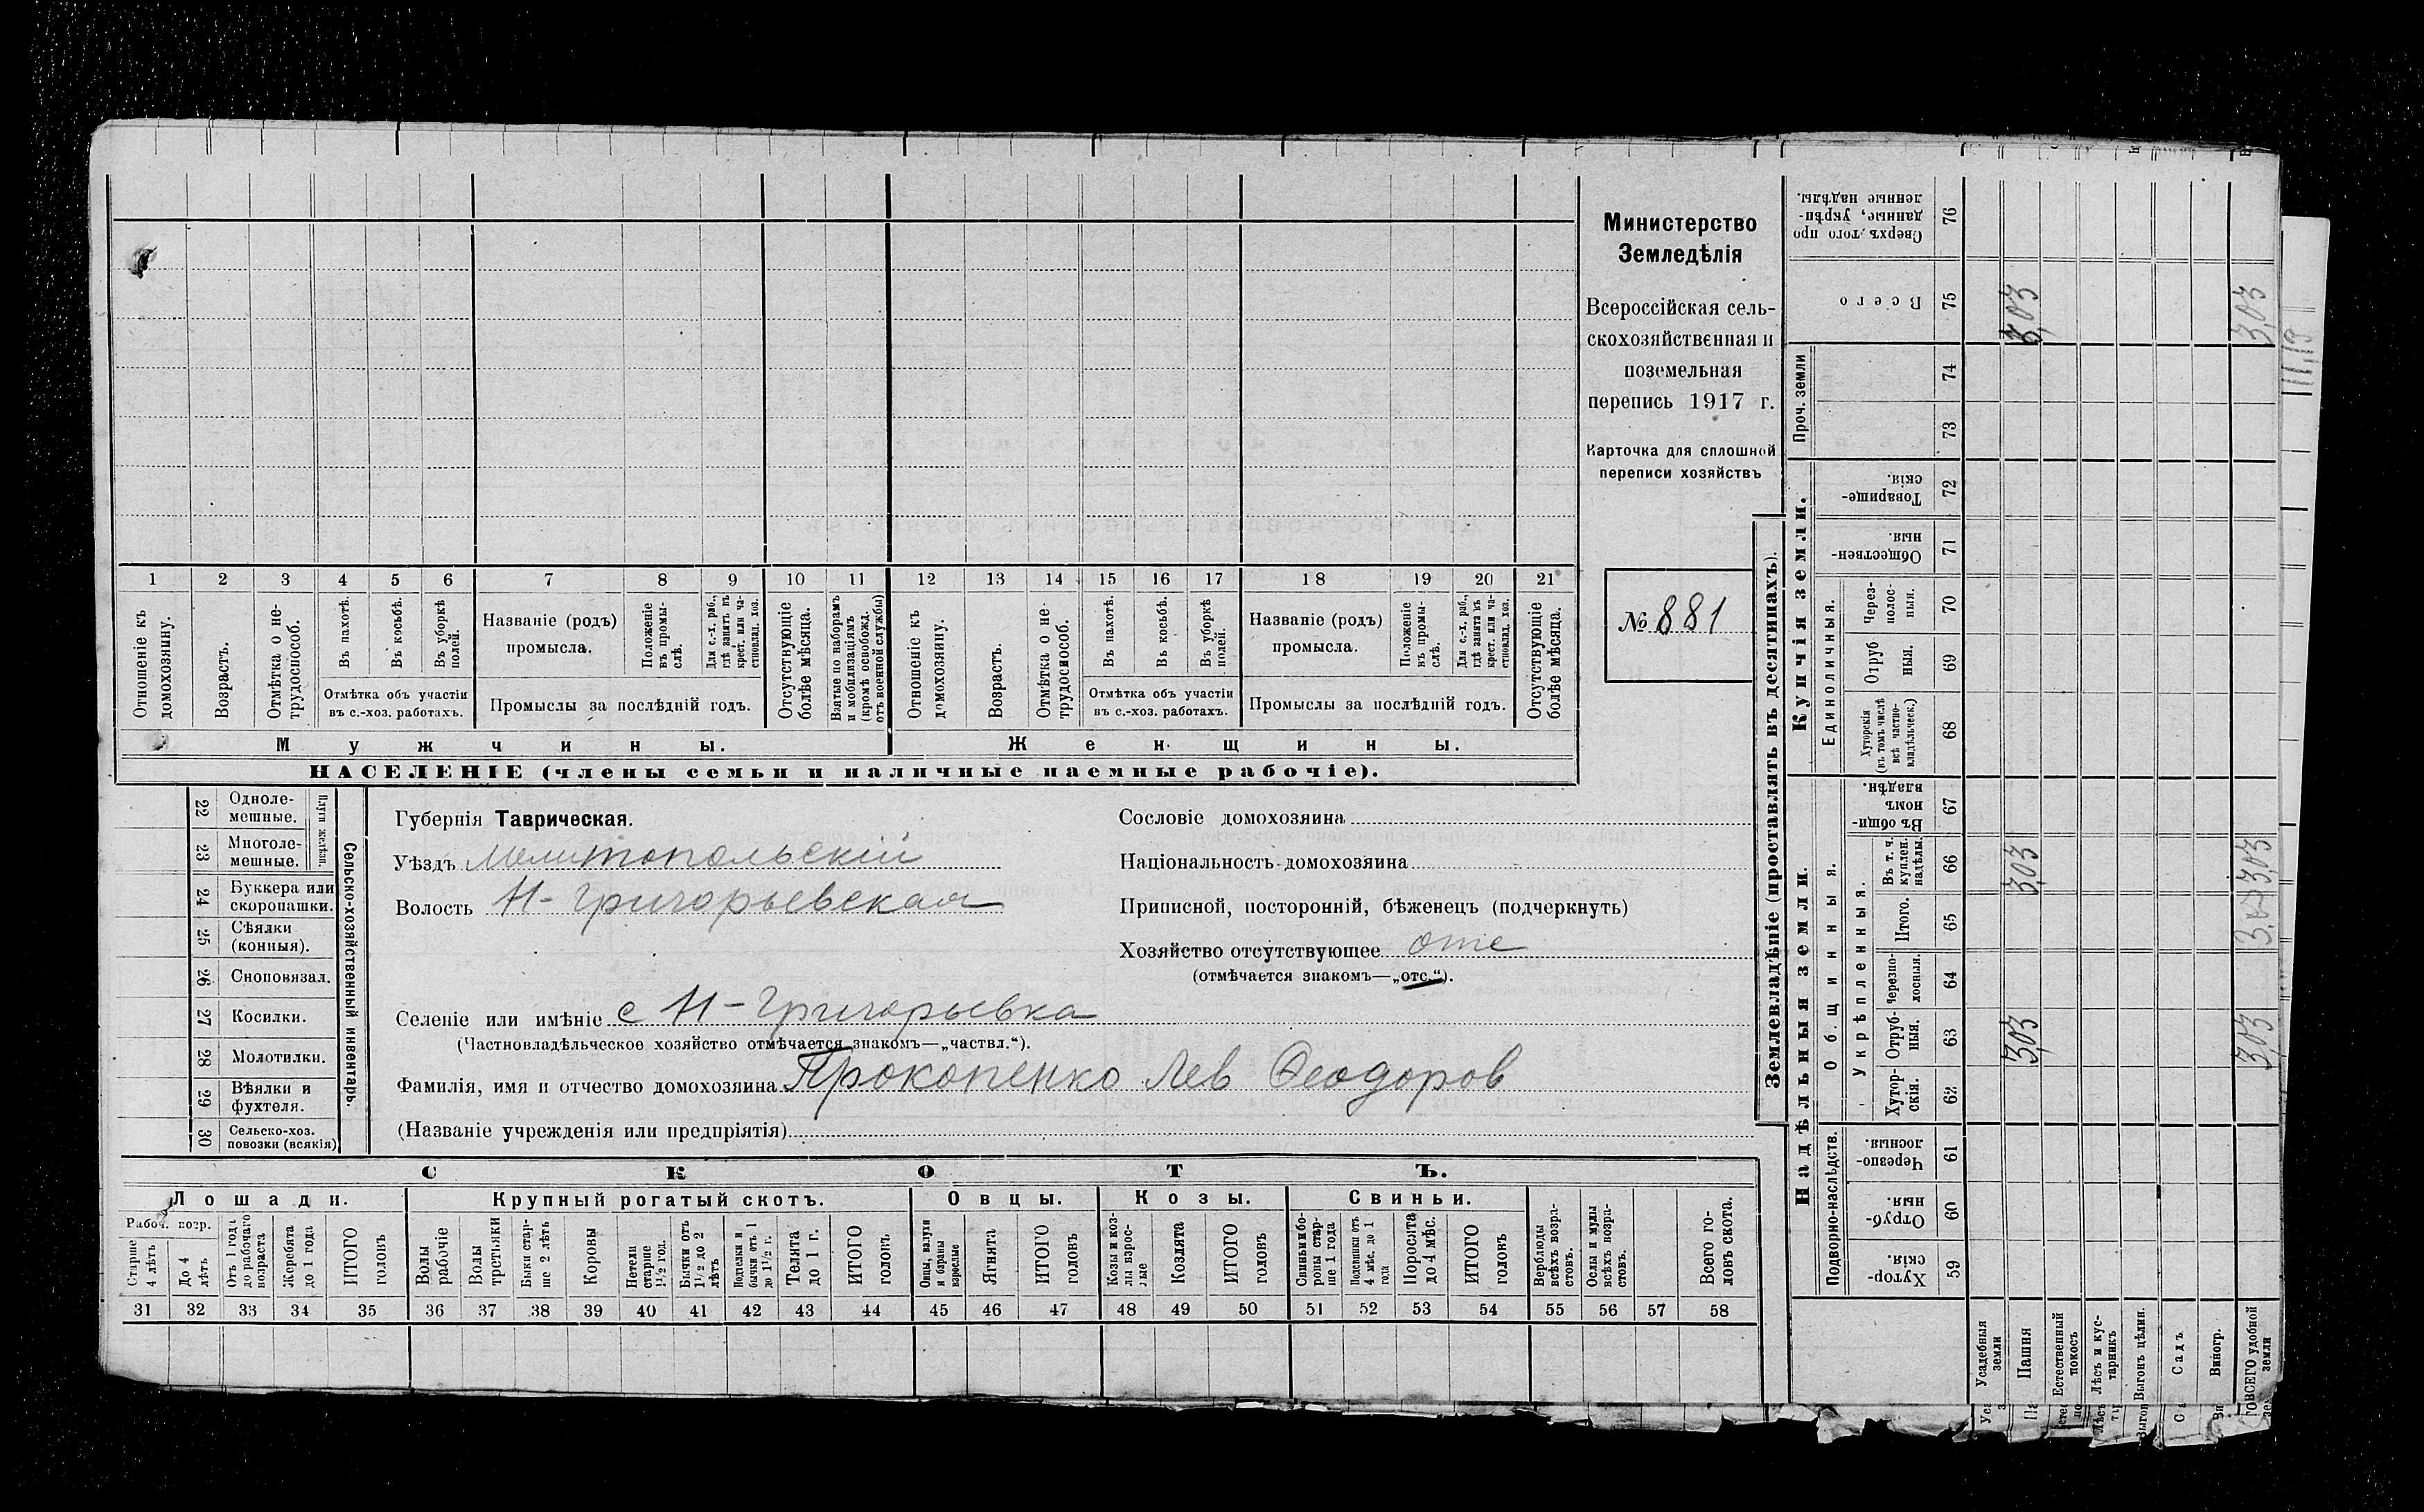 Министерство
Земледѣлія
Всероссійская сель-
скохозяйственная и
поземельная
перепись 1917 г.
Карточка для сплошной
переписи хозяйствъ
№ 881
1 2 3 4 5 6 7 8 9 10 11 12 13 14 15 16 17 18 19 20 21
Отношеніе къ домохозяину.
Возрастъ.
Отмѣтка о не-трудоспособ.
Въ пахотѣ.
Въ косьбѣ.
Въ уборкѣ полей.
Отмѣтка объ участіи
въ с.-хоз. работахъ.
Названіе (родъ)
промысла.
Положеніе въ промы-слѣ.
Для с.-х. раб., гдѣ занятъ въ крест. или ча-стновлад. хоз.
Промыслы за послѣдній годъ.
Отсутствующіе болѣе мѣсяца.
Взятые по наборамъ и мобилизаціямъ (кромѣ освобожд. отъ военной службы)
Отношеніе къ домохозяину.
Возрастъ.
Отмѣтка о не трудоспособ.
Въ пахотѣ.
Въ косьбѣ.
Въ уборкѣ полей.
Отмѣтка объ участіи
въ с.-хоз. работахъ.
Названіе (родъ)
промысла.
Положеніе въ промы-слѣ.
Для с.-х. раб., гдѣ занята въ крест. или ча-стновлад. хоз.
Промыслы за послѣдній годъ.
Отсутствующіе болѣе мѣсяца.
Мужчины.
Женщины.
НАСЕЛЕНІЕ (члены семьи и наличные наемные рабочіе).
Сельско-хозяйственный инвентарь.
Плуги желѣзн.
22 Одноле-мешные.
23 Многоле-мешные.
24 Буккера или скоропашки.
25 Сѣялки (конныя).
26 Сноповязал.
27 Косилки.
28 Молотилки.
29 Вѣялки и фухтеля.
30 Сельско-хоз. повозки (всякія)
Губернія Таврическая.
Уѣздъ Мелитопольскій
Волость Н-Григорьевская
Сословіе домохозяина
Національность домохозяина
Приписной, посторонній, бѣженецъ (подчеркнуть)
Хозяйство отсутствующее отс
(отмѣчается знакомъ—„отс.“).
Селеніе или имѣніе с Н-Григорьевка
(Частновладѣльческое хозяйство отмѣчается знакомъ—„частвл.“).
Фамилія, имя и отчество домохозяина Прокопенко Лев Ѳеодоров
(Названіе учрежденія или предпріятія)
СКОТЪ.
Лошади.
Крупный рогатый скотъ.
Овцы.
Козы.
Свиньи.
Рабоч. возр.
Старше 4 лѣтъ
До 4 лѣтъ
Отъ 1 года до рабочаго возраста
Жеребята до 1 года
ИТОГО головъ
Волы рабочіе
Волы третьяки
Быки стар-ше 2 лѣтъ
Коровы
Нетели старше 1½ год.
Бычки отъ 1½ до 2 лѣтъ
Подтелки и бычки отъ 1 до 1½ г.
Телята до 1 г.
ИТОГО головъ
Овцы, валухи и бараны взрослые
Ягнята
ИТОГО головъ
Козы и коз-лы взрос-лые
Козлята
ИТОГО головъ
Свиньи и бо-ровы стар-ше 1 года
Подсвинки отъ 4 мѣс. до 1 года
Поросята до 4 мѣс.
ИТОГО головъ
Верблюды всѣхъ возра-стовъ.
Ослы и мулы всѣхъ возра-стовъ.
Всего го-ловъ скота.
31 32 33 34 35 36 37 38 39 40 41 42 43 44 45 46 47 48 49 50 51 52 53 54 55 56 57 58
Землевладѣніе (проставлять въ десятинахъ).
Надѣльныя земли.
Подворно-наслѣдств.
Хутор-скія. 59
Отруб-ныя. 60
Черезпо-лосныя. 61
Общинныя.
Укрѣпленныя.
Хутор-скія. 62
Отруб-ныя. 63
Черезпо-лосныя. 64
Итого. 65
Въ т. ч. куплен. надѣлы. 66
Въ общи-номъ владѣн. 67
Купчія земли.
Единоличныя.
Хуторскія (въ томъ числѣ всѣ частно-владѣльческ.) 68
Отруб ныя. 69
Через-полос-ныя. 70
Обществен-ныя. 71
Товарище-скія. 72
Проч. земли
73
74
Всего 75
Сверхъ того, про данные, укрѣп-ленные надѣлы. 76
Усадебныя земли
Пашня 3,03 3,03 3,03
Естественный покосъ
Лѣсъ и кус-тарникъ
Выгонъ цѣлин.
Садъ
Виногр.
ВСЕГО удобной земли 3,03 3,03 3,03 3,03